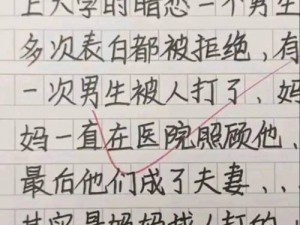 上大学的暗恋一个男生
多次表白都被拒绝，有
一次男生被人打了，妈
妈一直在医院照顾他，
最后他们成了夫妻、、
其实是妈妈找人打的